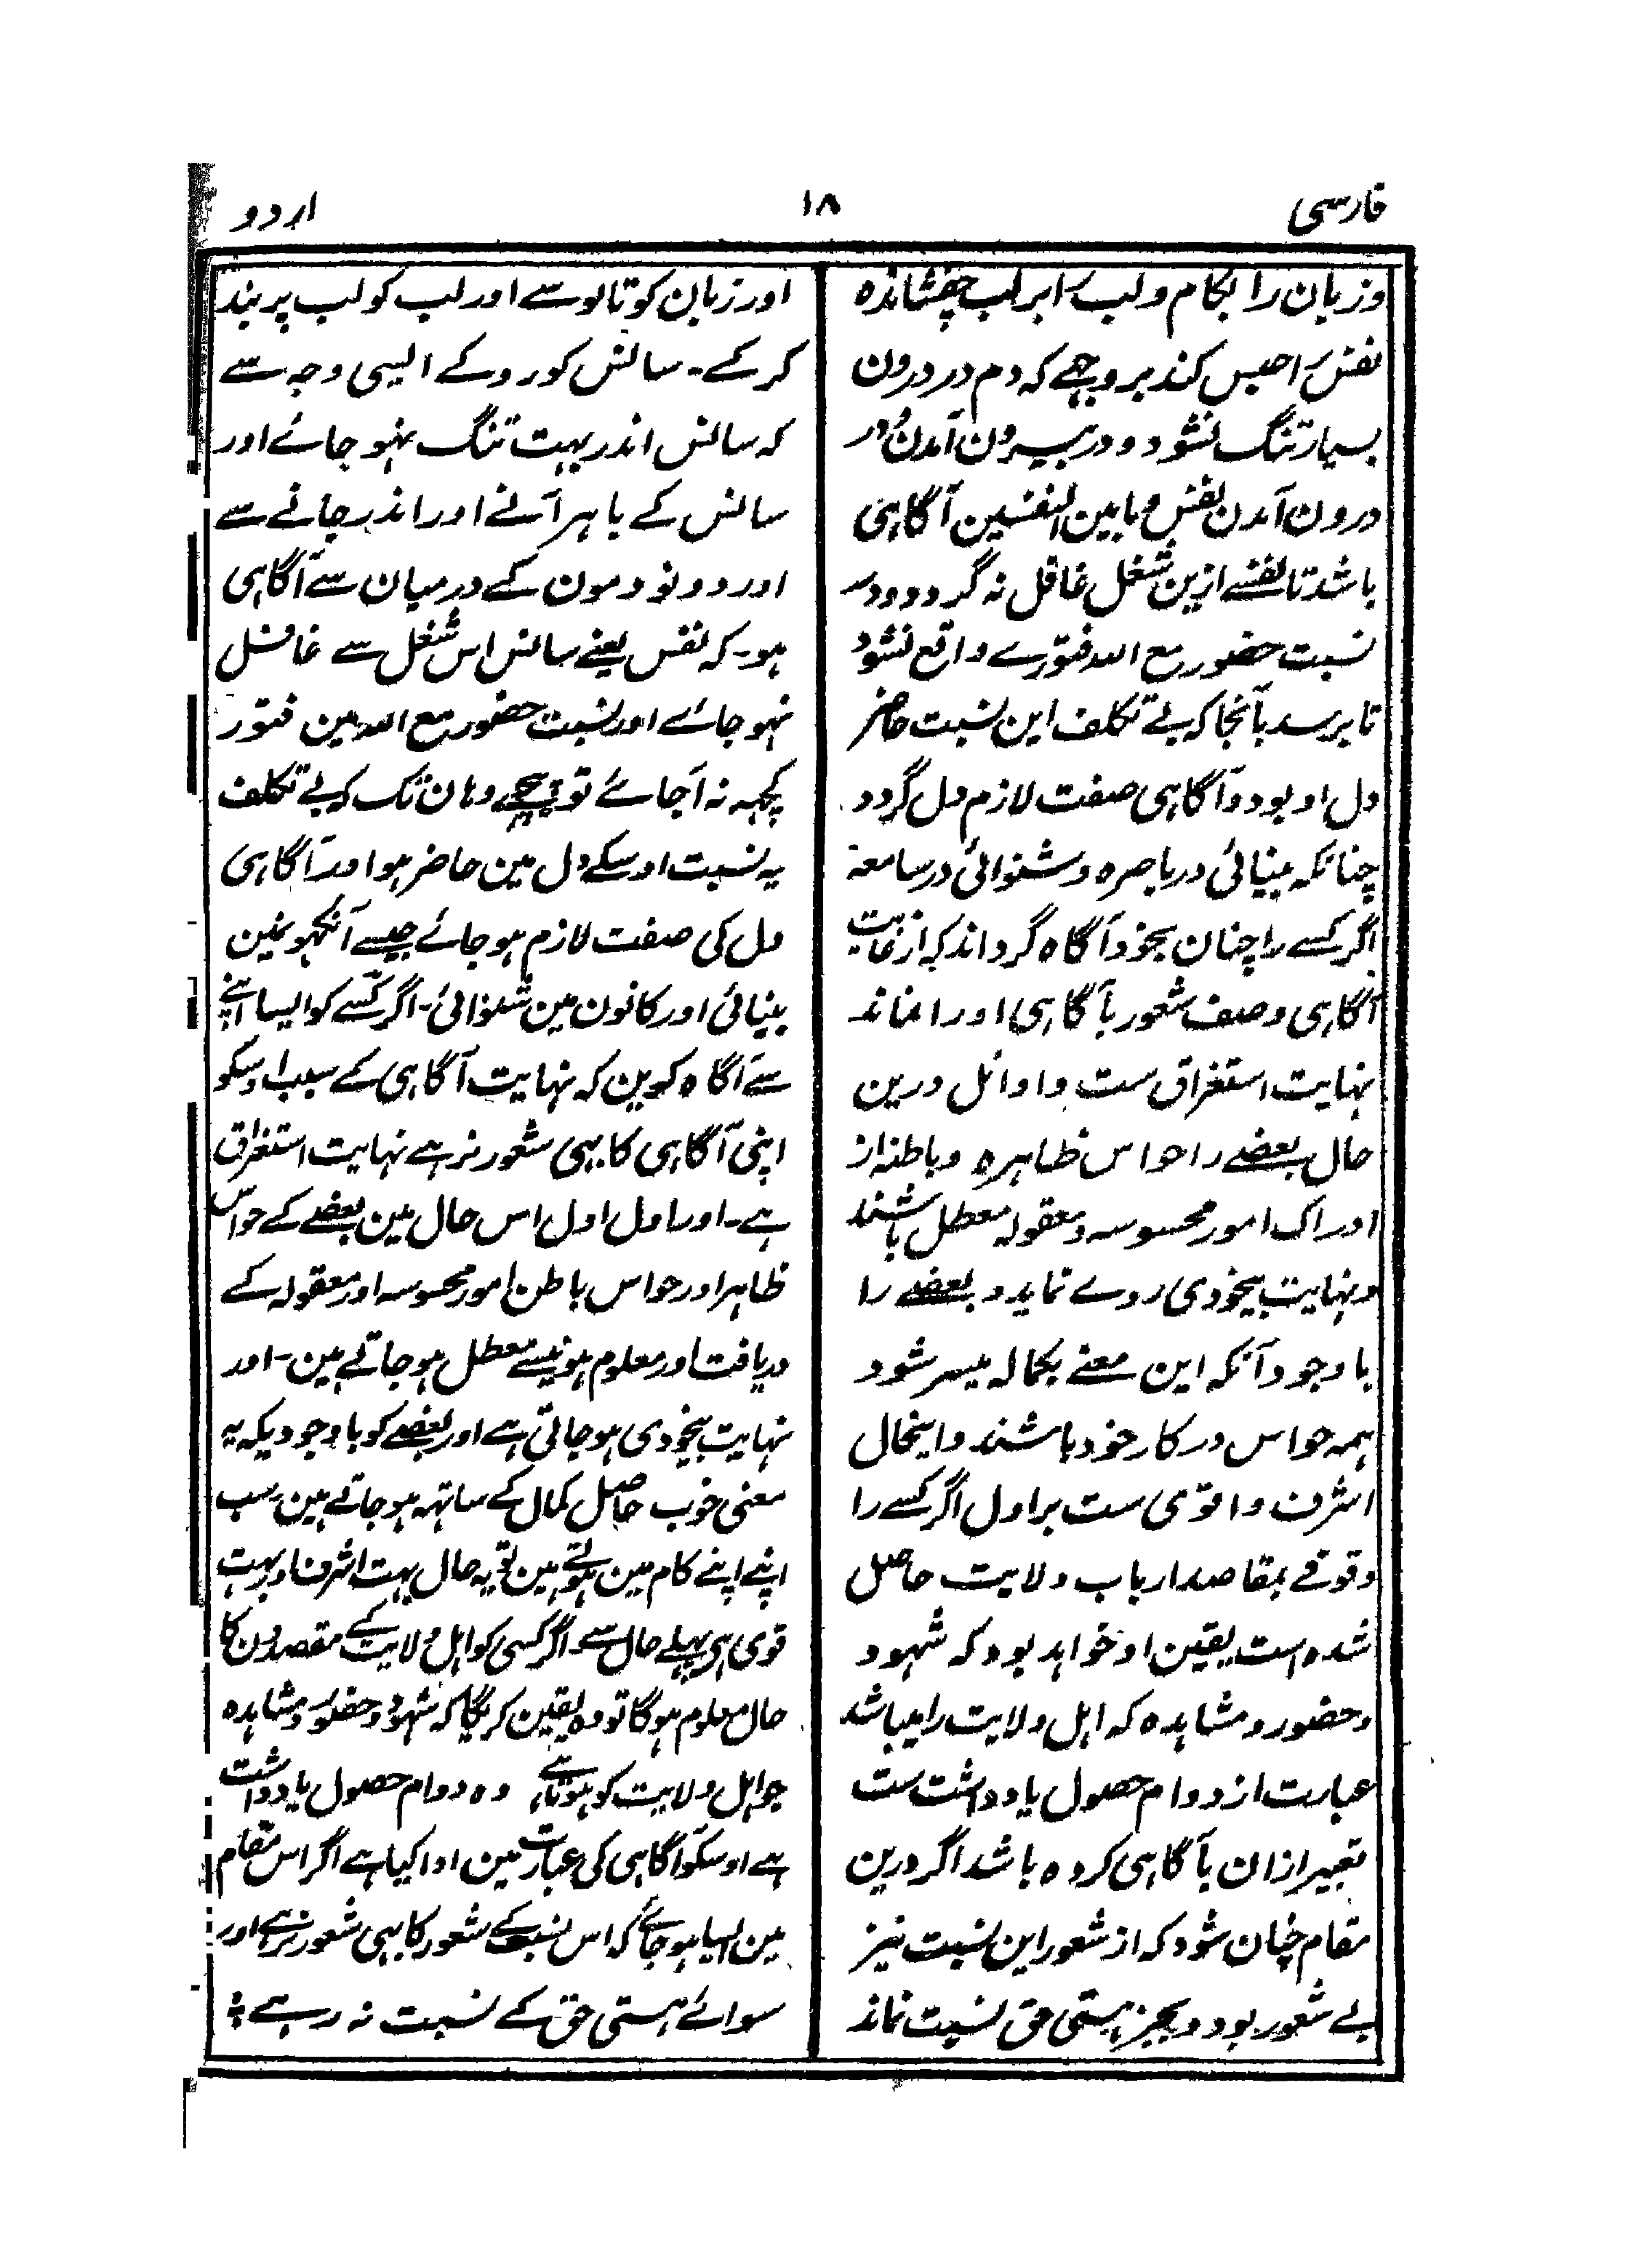 فارسی
۱۸
اردو
وزبان را بکام ولب را برلب چفشانده
نفس را حبس کند بروجہے کہ دم در درون
بسیار تنگ نشود و در بیرون آمدن و در
درون آمدن نفس و مابین النفسین آگاہی
باشد تا نفسے ازین شغل غافل نہ گردد و در
نسبت حضور مع اللہ فتورے واقع نشود
تا برسد بآنجا کہ بے تکلف این نسبت حاضر
دل او بود و آگاہی صفت لازم دل گردد
چنانکہ بینائی در باصرہ و شنوائی در سامعہ
اگر کسے را چنان بخود آگاہ گرداند کہ از غایت
آگاہی وصف شعور بآگاہی او را نماند
نہایت استغراق ست و اوائل درین
حال بعضے را حواس ظاہرہ و باطنہ از
ادراک امور محسوسہ و معقولہ معطل باشند
و نہایت بیخودی روے نماید و بعضے را
با وجود آنکہ این معنے بکمالہ میسر شود
ہمہ حواس در کار خود باشند و اینحال
اشرف و اقوی ست بر اول اگر کسے را
وقوفے بمقاصد ارباب ولایت حاصل
شدہ است یقین او خواہد بود کہ شہود
و حضور و مشاہدہ کہ اہل ولایت را میباشد
عبارت از دوام حصول یادداشت ست
تعبیر ازان بآگاہی کردہ باشد اگر درین
مقام چنان شود کہ از شعور این نسبت نیز
بے شعور بود و بجز ہستی حق نسبت نماند
اور زبان کو تالو سے اور لب کو لب پر بند
کر کے۔ سانس کو روکے ایسی وجہ سے
کہ سانس اندر بہت تنگ نہو جائے اور
سانس کے باہر آنے اور اندر جانے سے
اور دونو دمون کے درمیان سے آگاہی
ہو۔ کہ نفس یعنے سانس اس شغل سے غافل
نہو جائے اور نسبت حضور مع اللہ مین فتور
کچہہ نہ آجائے تو پہنچے وہان تک کہ بے تکلف
یہ نسبت اوسکے دل مین حاضر ہو اور آگاہی
دل کی صفت لازم ہو جائے جیسے آنکہونمین
بینائی اور کانون مین شنوائی۔ اگر کسے کو ایسا اپنے
سے آگاہ کرین کہ نہایت آگاہی کے سبب اوسکو
اپنی آگاہی کا بہی شعور نرہے نہایت استغراق
ہے۔ اور اول اول اس حال مین بعضے کے حواس
ظاہر اور حواس باطن امور محسوسہ اور معقولہ کے
دریافت اور معلوم ہونیسے معطل ہو جاتے ہین۔ اور
نہایت بیخودی ہو جاتی ہے اور بعضے کو باوجودیکہ یہ
معنی خوب حاصل کمال کے ساتہہ ہو جاتے ہین سب
اپنے اپنے کام مین ہوتے ہین تو یہ حال بہت اشرف اور بہت
قوی ہی پہلے حال سے۔ اگر کسی کو اہل ولایت کے مقصدون کا
حال معلوم ہوگا تو وہ یقین کریگا کہ شہود و حضور و مشاہدہ
جو اہل ولایت کو ہوتا ہے وہ دوام حصول یادداشت
ہے اوسکو آگاہی کی عبارت مین ادا کیا ہے اگر اس مقام
مین ایسا ہو جائے کہ اس نسبت کے شعور کا بہی شعور نرہے اور
سوائے ہستی حق کے نسبت نہ رہے ؞